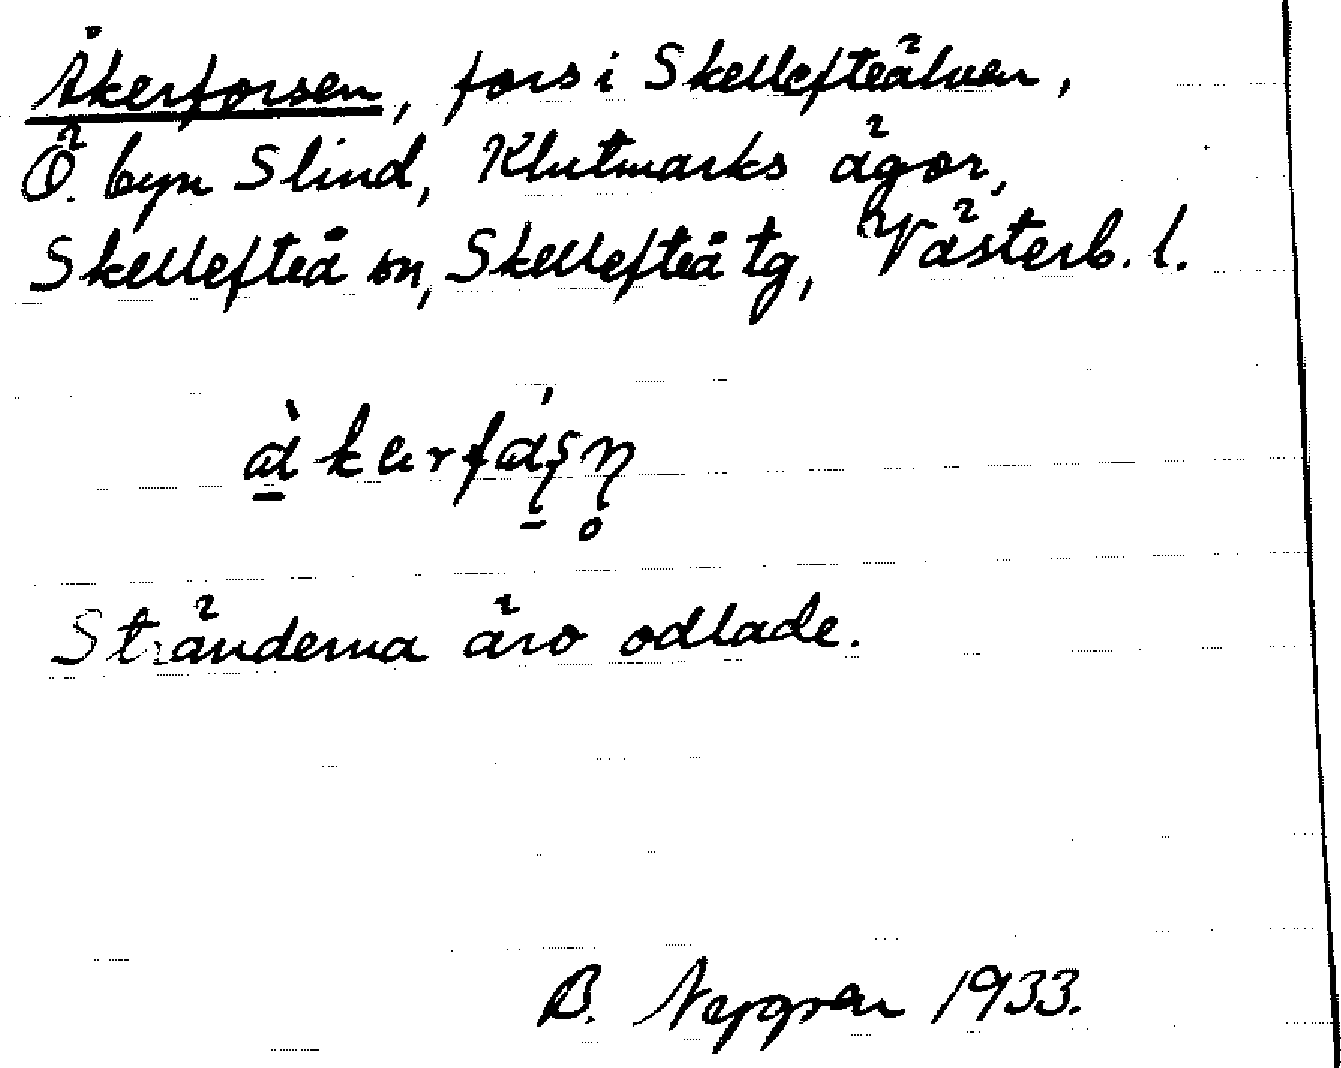 Åkerforsen, fors i Skellefteälven,
Ö. byn Slind, Klutmarks ägor,
Skellefteå sn, Skellefteå tg, Västerb. l.
Stränderna äro odlade.
B. Nygren 1933.